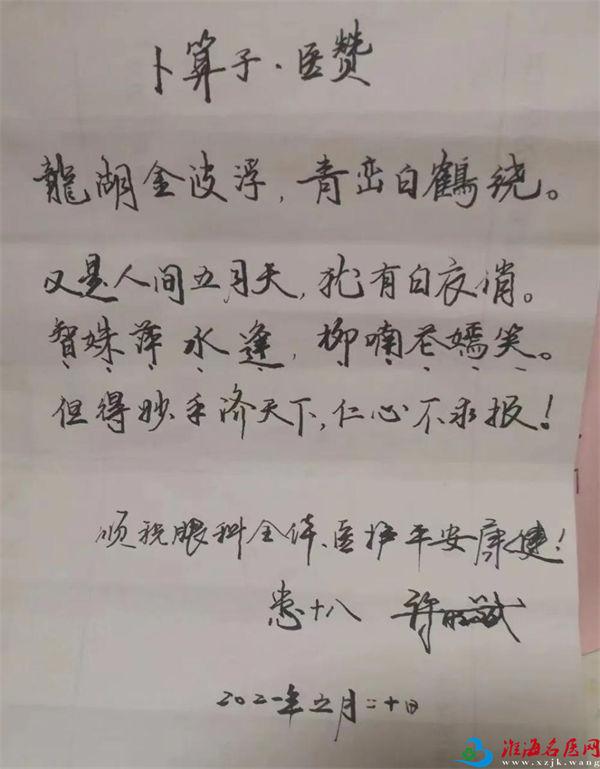 卜算子·医赞
龍湖金波浮,青峦白鶴绕。
又是人间五月天,犹有白衣俏。
智姝萍水逢,柳喃花嫣笑。
但得妙手济天下,仁心不求报!
顺祝眼科全体医护平安康健!
患十八 許
2021年五月二十日
淮海名医网
www.xzjk.wang